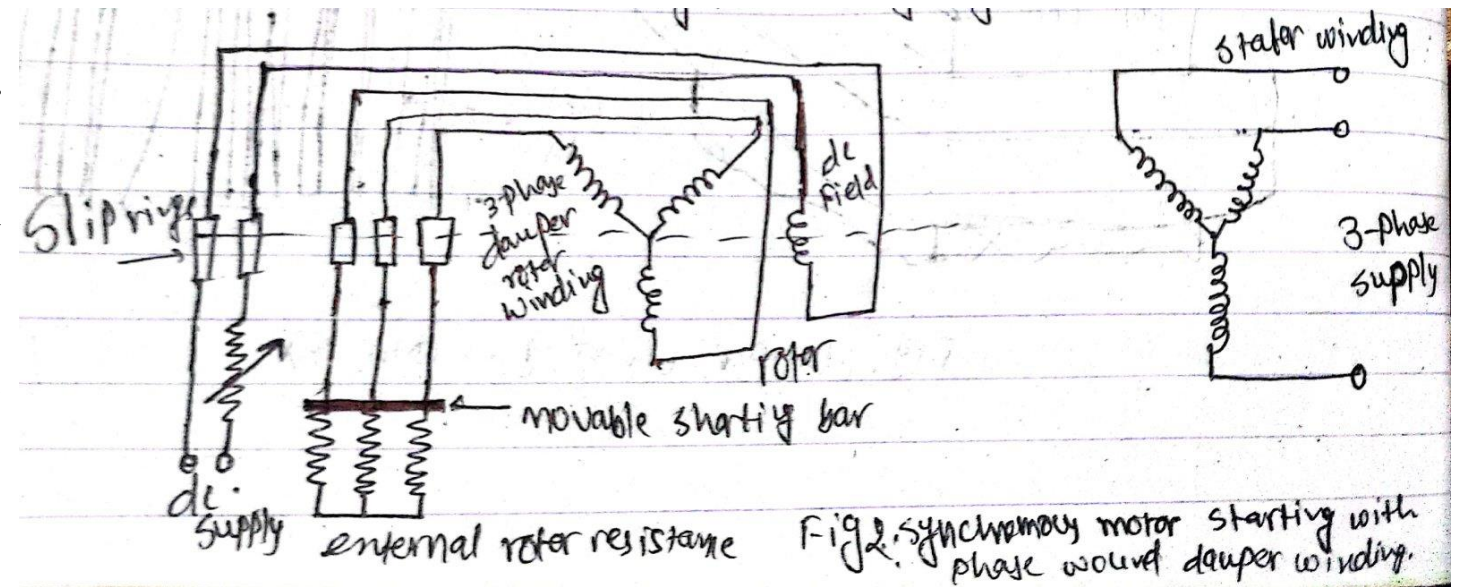 stator winding
Slip rings
3-phase
damper
rotor
winding
dc
field
3-phase
supply
rotor
movable shorting bar
dc
supply
external rotor resistance
Fig 2. synchronous motor starting with
phase wound damper winding.